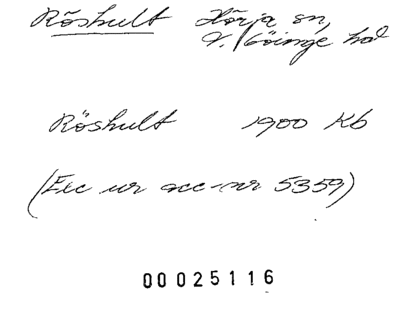 Röshult Hörja sn,
V. Göinge hd
Röshult 1900 Kb
(Exc ur acc-nr 5359)
00025116